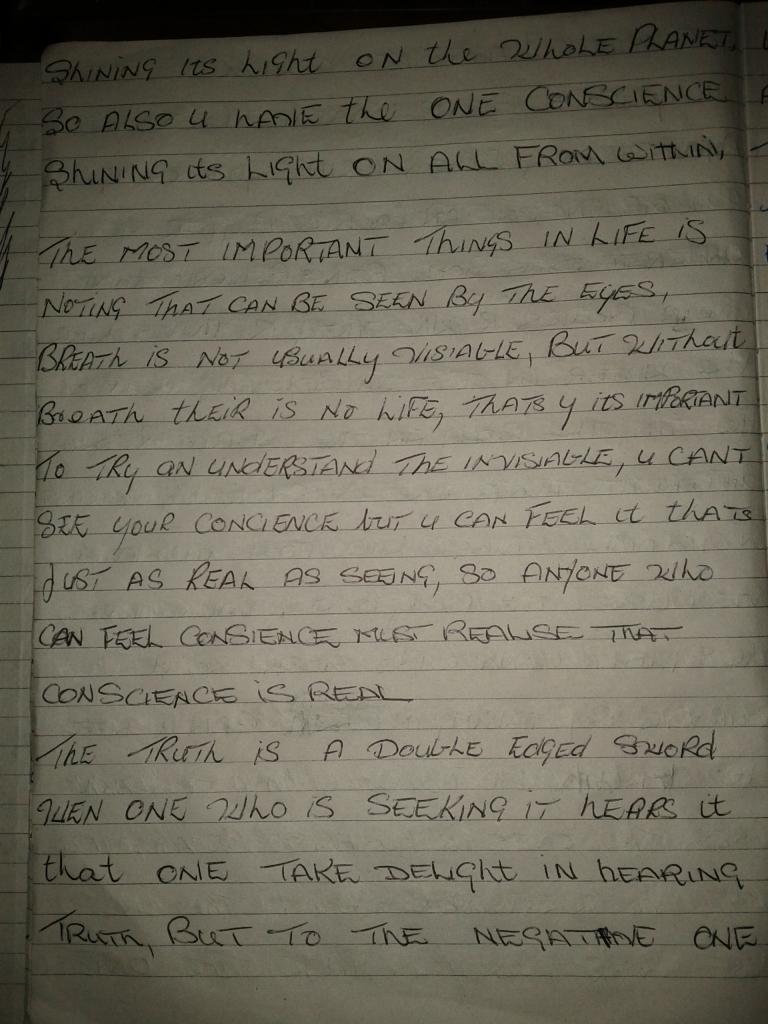 Shining its Light ON the WHOLE PLANET,
SO ALSO U HAVE the ONE CONSCIENCE
Shining its Light ON ALL FROM WITHIN,
THE MOST IMPORTANT THINGS IN LIFE IS
NOTING THAT CAN BE SEEN BY THE EYES,
BREATH IS NOT USUALLY VISIABLE, BUT WITHOUT
BREATH THEIR IS NO LIFE, THATS Y ITS IMPORTANT
TO TRY AN UNDERSTAND THE INVISIABLE, U CANT
SEE YOUR CONCIENCE but U CAN FEEL it thats
JUST AS REAL AS SEEING, SO ANYONE WHO
CAN FEEL CONSIENCE MUST REALISE THAT
CONSCIENCE IS REAL
THE TRUTH IS A DOUBLE EDGED SWORD
WEN ONE WHO IS SEEKING IT HEARS it
that ONE TAKE DELIGHT IN HEARING
TRUTH, BUT TO THE NEGATIVE ONE